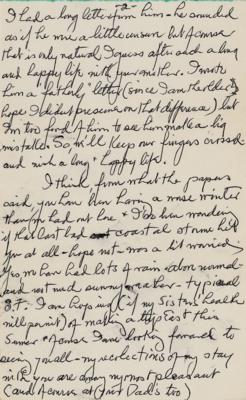 I had a long letter from him – he sounded
as if he were a little unsure but of course
that is only natural I guess after such a long
and happy life with your mother. I wrote
him a "fatherly" letter (since I am the elder I
hope I did not presume on that difference) but
I'm too fond of him to see him make a big
mistake. So, will keep our fingers crossed
and wish a long & happy life.
I think from what the papers
said you have been having a worse winter
than we had out here & I've been wondering
if that last bad coastal storm hit
you at all – hope not – was a bit worried
Yes we have had lots of rain – above normal –
and not much sunny weather – typical
S.F. I am hoping (if my Sister's health
will permit) of making a trip East this
Summer & of course I am looking forward to
seeing you all – my recollections of my stay
with you are among my most pleasant
(and of course at your Dad's too)